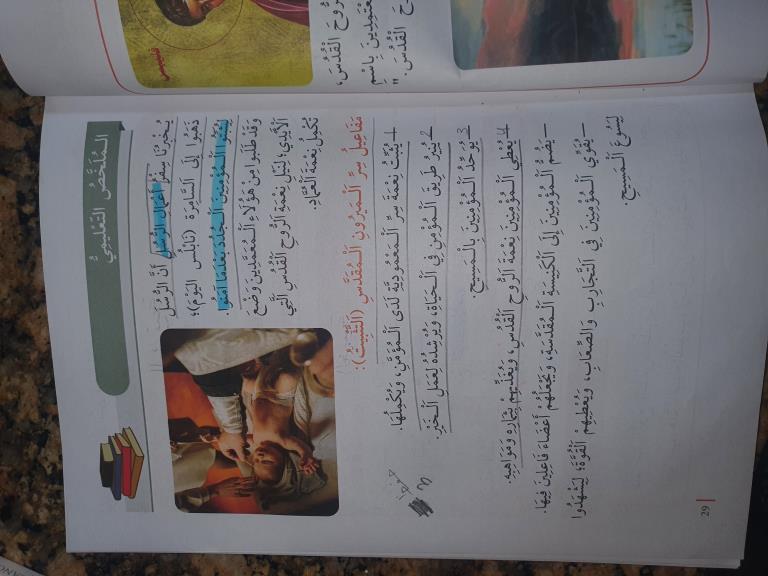 رُّوحَ الْقُدُسَ،
الْقُدُسِ."
فيليبس
الْـمُلَخَّصُ التَّعْلِيمِيُّ
يُـخْبِرُنَا سِفْرُ أَعْمَالِ الرُّسُلِ أَنَّ الرُّسُلَ
ذَهَبُوا إِلَى السَّامِرَةِ (نَابْلُسَ الْيَوْمَ)؛
لِيُثَبِّتُوا الْـمُؤْمِنِينَ الْـجُدُدَ بَعْدَمَا آمَنُوا.
وَقَدْ طَلَبُوا مِنْ هَؤُلَاءِ الْـمُعَمَّدِينَ وَضْعَ
الْأَيْدِي؛ لِنَيْلِ نِعْمَةِ الرُّوحِ الْقُدُسِ الَّتِي
تُكْمِلُ نِعْمَةَ الْعِمَادِ.
مَفَاعِيلُ سِرِّ الْـمَيْرُونِ الْـمُقَدَّسِ (التَّثْبِيتُ):
1 يُثَبِّتُ نِعْمَةَ سِرِّ الْـمَعْمُودِيَّةِ لَدَى الْـمُؤْمِنِ، وَيُكْمِلُهَا.
2 يُنِيرُ طَرِيقَ الْـمُؤْمِنِ فِي الْـحَيَاةِ، وَيُرْشِدُهُ لِعَمَلِ الْـخَيْرِ.
3 يُوَحِّدُ الْـمُؤْمِنِينَ بِالْـمَسِيحِ.
4 يُعْطِي الْـمُؤْمِنِينَ نِعْمَةَ الرُّوحِ الْقُدُسِ، وَيُغَذِّيهِمْ بِثِمَارِهِ وَمَوَاهِبِهِ.
– يَضُمُّ الْـمُؤْمِنِينَ إِلَى الْكَنِيسَةِ الْـمُقَدَّسَةِ، وَيَجْعَلُهُمْ أَعْضَاءَ فَاعِلِينَ فِيهَا.
– يُقَوِّي الْـمُؤْمِنِينَ فِي التَّجَارِبِ وَالصِّعَابِ، وَيُعْطِيهِمُ الْقُوَّةَ؛ لِيَشْهَدُوا
لِيَسُوعَ الْـمَسِيحِ.
29